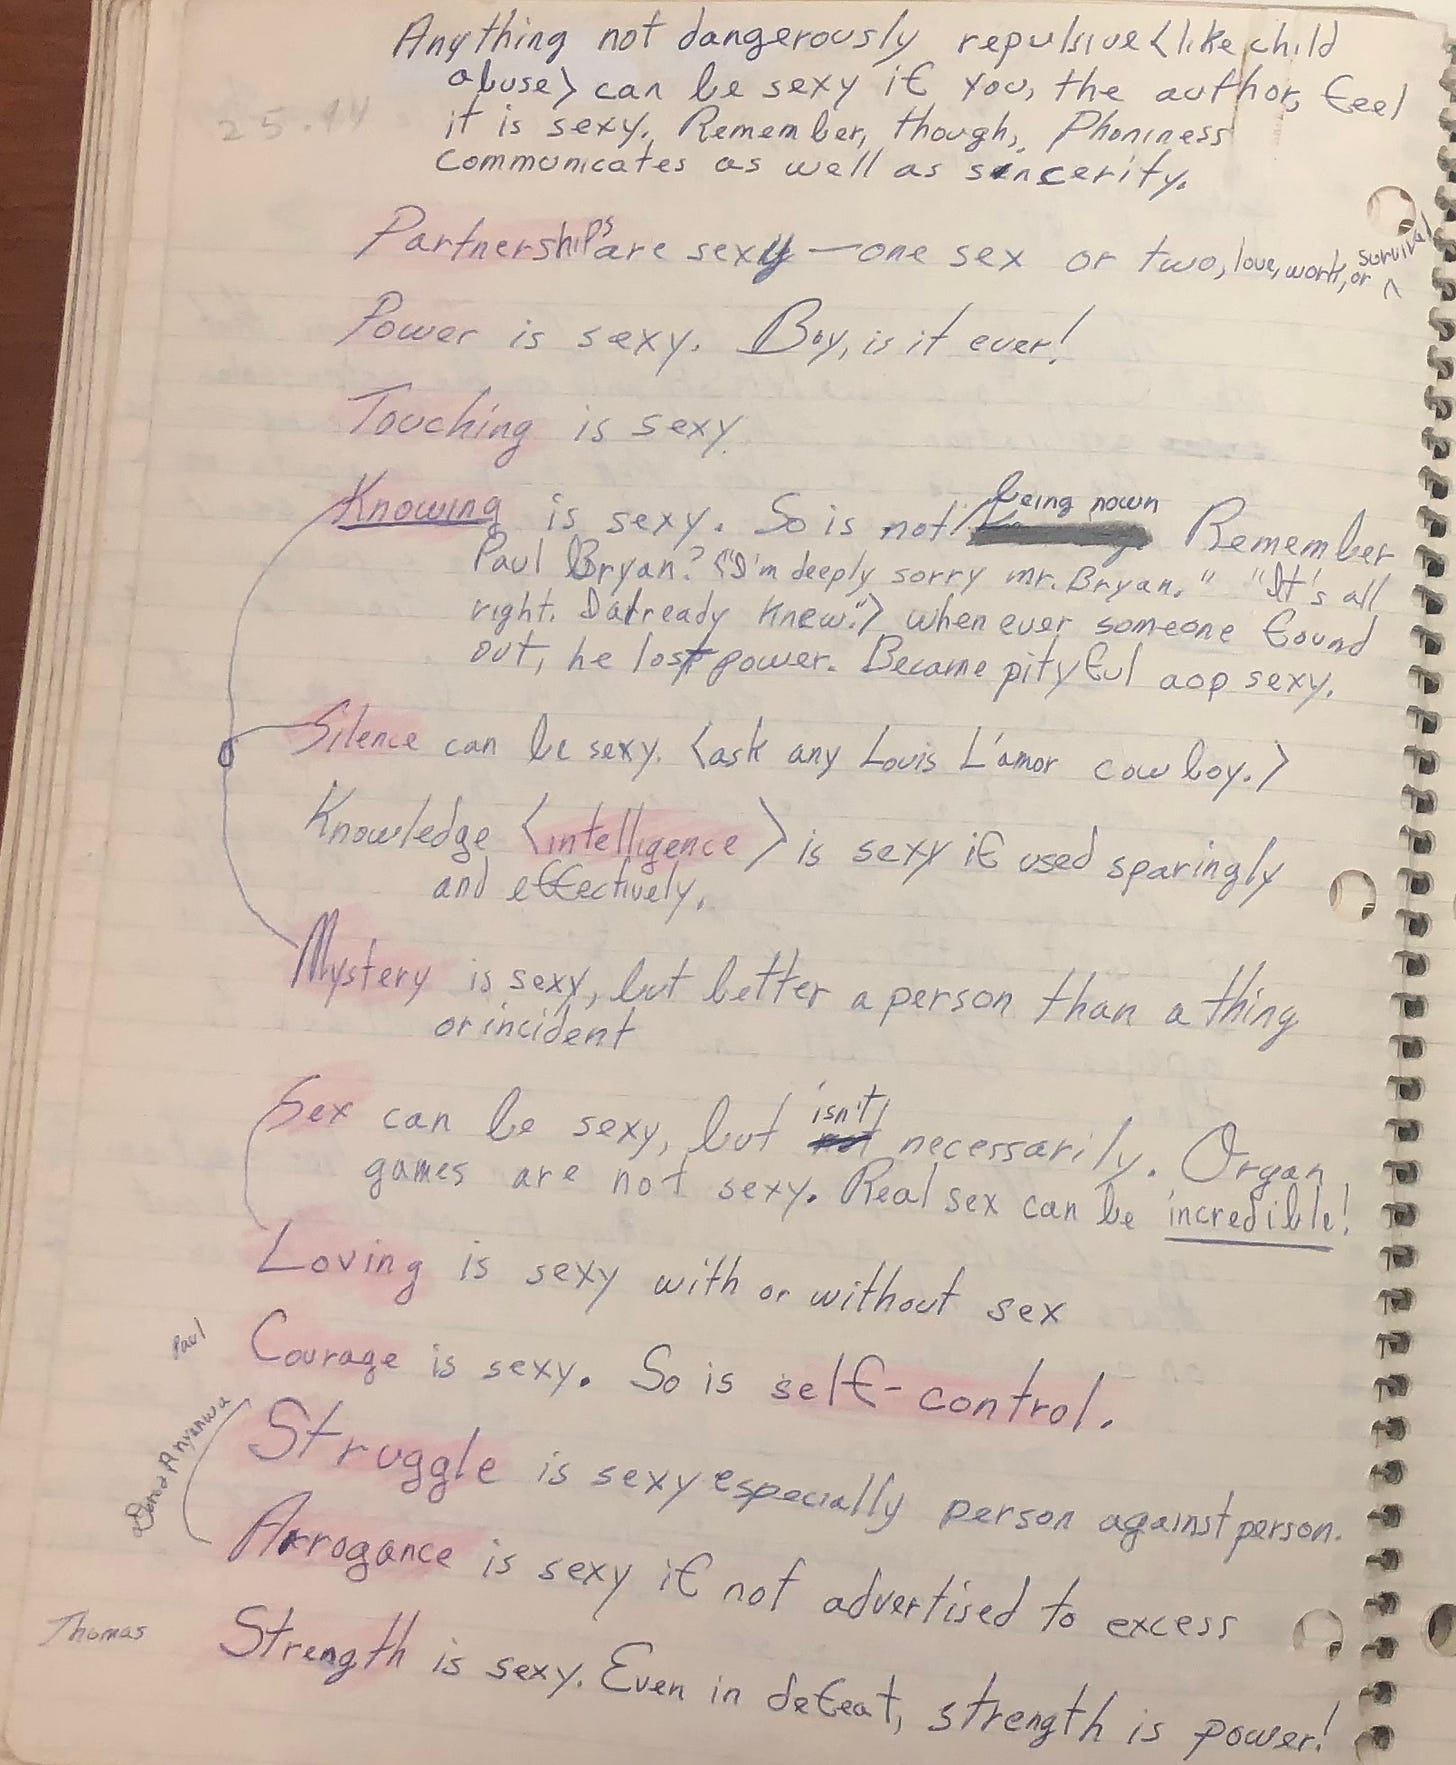 Anything not dangerously repulsive <like child
abuse> can be sexy if you, the author, feel
it is sexy. Remember, though, Phoniness
communicates as well as sincerity.
25.44
Partnerships are sexy — one sex or two, love, work, or survival
Power is sexy. Boy, is it ever!
Touching is sexy.
Knowing is sexy. So is not being nown Remember
Paul Bryan? <"I'm deeply sorry mr. Bryan." "It's all
right. I already knew."> when ever someone found
out, he lost power. Became pityful aop sexy.
Silence can be sexy. <ask any Louis L'amor cowboy.>
Knowledge <intelligence> is sexy if used sparingly
and effectively.
Mystery is sexy, but better a person than a thing
or incident
Sex can be sexy, but isn't necessarily. Organ
games are not sexy. Real sex can be incredible!
Loving is sexy with or without sex
Paul
Courage is sexy. So is self-control.
Doro & Anyanwu
Struggle is sexy especially person against person.
Arrogance is sexy if not advertised to excess
Thomas
Strength is sexy. Even in defeat, strength is power!